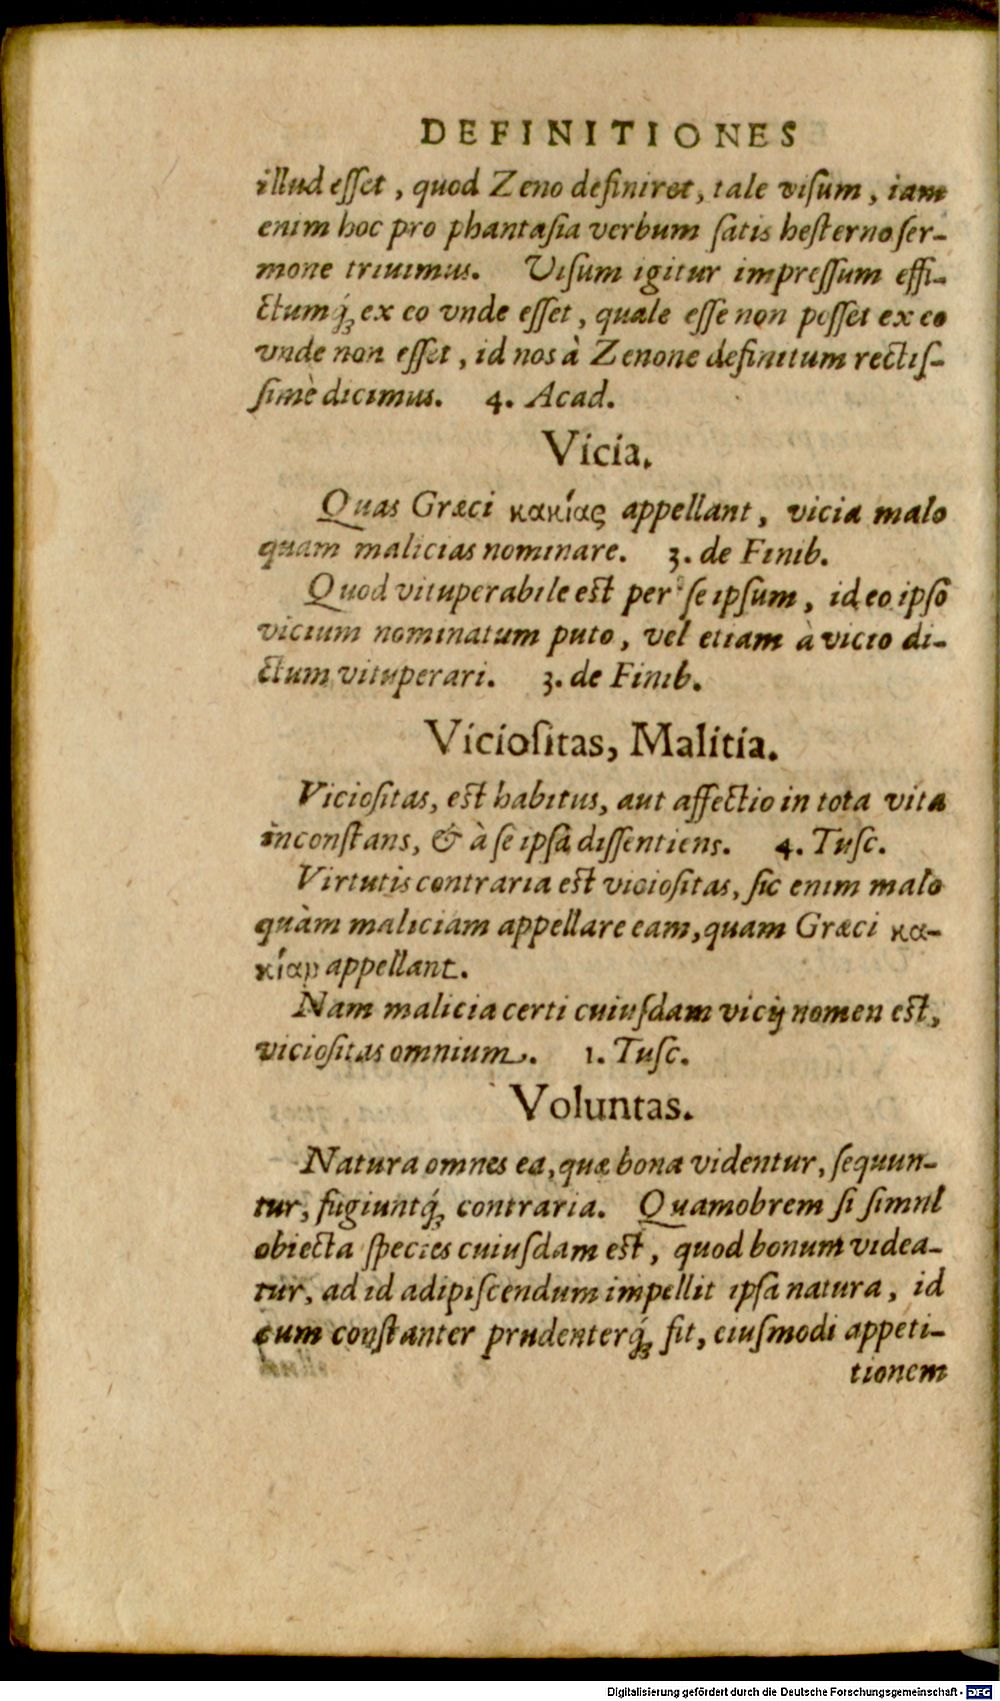 DEFINITIONES
illud esset, quod Zeno definiret, tale visum, iam
enim hoc pro phantasia verbum satis hesterno ser-
mone triuimus. Visum igitur impressum effi-
ctumq́; ex eo vnde esset, quale esse non posset ex eo
vnde non esset, id nos à Zenone definitum rectis-
simè dicimus. 4. Acad.
Vicia.
Quas Græci κακίας appellant, vicia malo
quam malicias nominare. 3. de Finib.
Quod vituperabile est per se ipsum, id eo ipso
vicium nominatum puto, vel etiam à vicio di-
ctum vituperari. 3. de Finib.
Viciositas, Malitia.
Viciositas, est habitus, aut affectio in tota vita
inconstans, & à se ipsa dissentiens. 4. Tusc.
Virtutis contraria est viciositas, sic enim malo
quàm maliciam appellare eam, quam Græci κα-
κίαν appellant.
Nam malicia certi cuiusdam vicij nomen est,
viciositas omnium. 1. Tusc.
Voluntas.
Natura omnes ea, quæ bona videntur, sequun-
tur, fugiuntq́; contraria. Quamobrem si simul
obiecta species cuiusdam est, quod bonum videa-
tur, ad id adipiscendum impellit ipsa natura, id
cum constanter prudenterq́; fit, eiusmodi appeti-
tionem
Digitalisierung gefördert durch die Deutsche Forschungsgemeinschaft - DFG